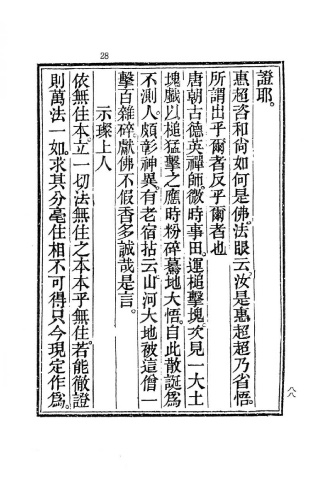 28
證耶。
惠超咨和尙如何是佛。法眼云。汝是惠超。超乃省悟。
所謂出乎爾者反乎爾者也
唐朝古德英禪師。微時事田。運槌擊塊。次見一大土
塊。戲以槌猛擊之。應時粉碎。驀地大悟。自此散誕。爲
不測人。頗彰神異。有老宿拈云。山河大地被這僧一
擊百雜碎。獻佛不假香多。誠哉是言。
示璨上人
依無住本。立一切法。無住之本。本乎無住。若能徹證
則萬法一如。求其分毫住相不可得。只今現定作爲。
八八